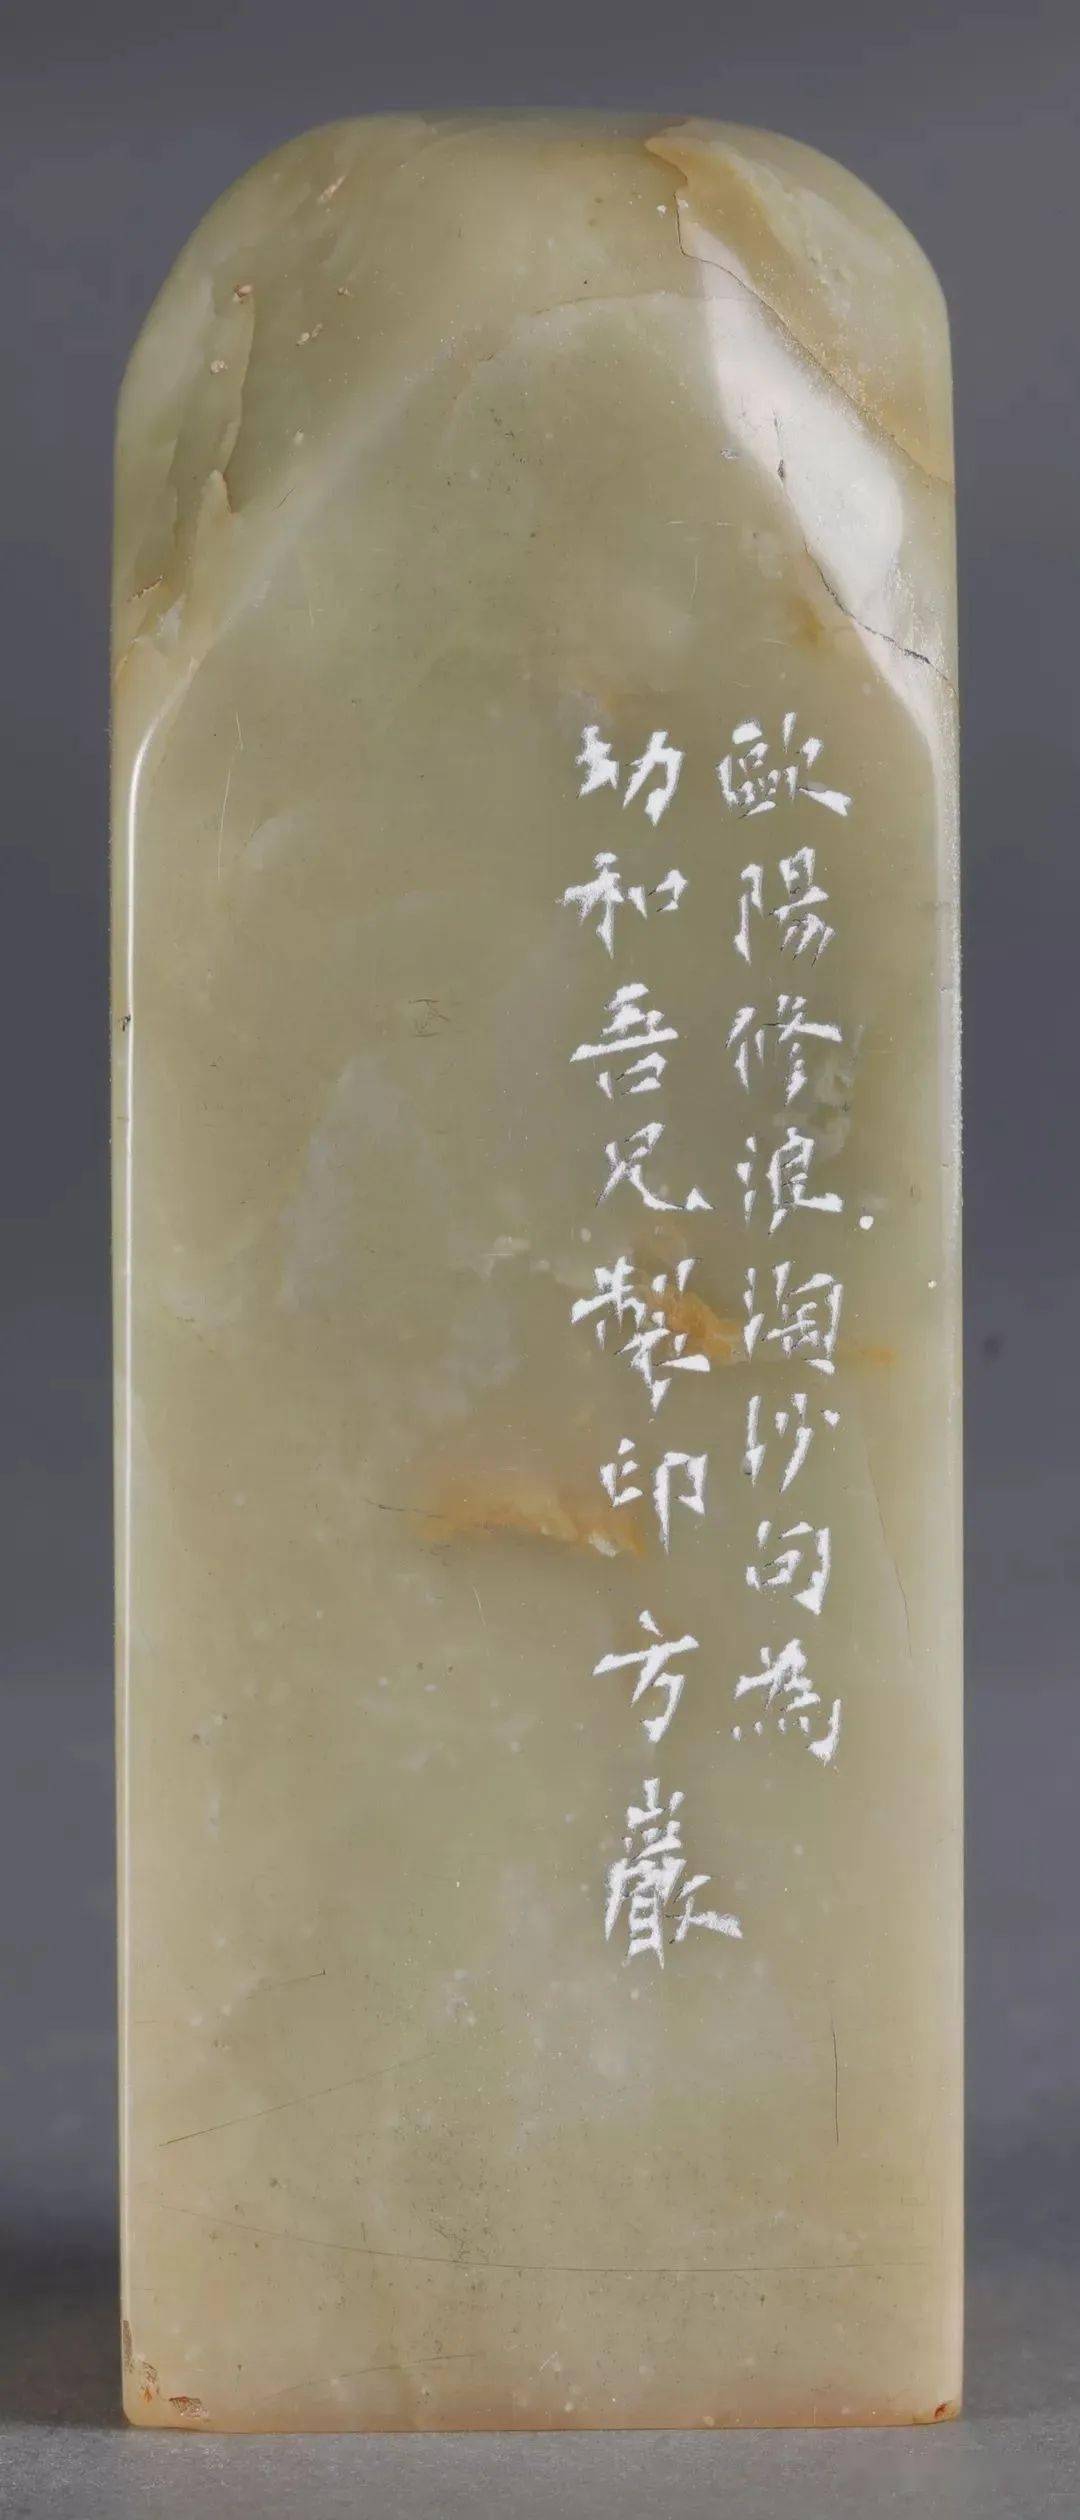 歐陽修浪淘沙句為
幼和吾兄製印方巖